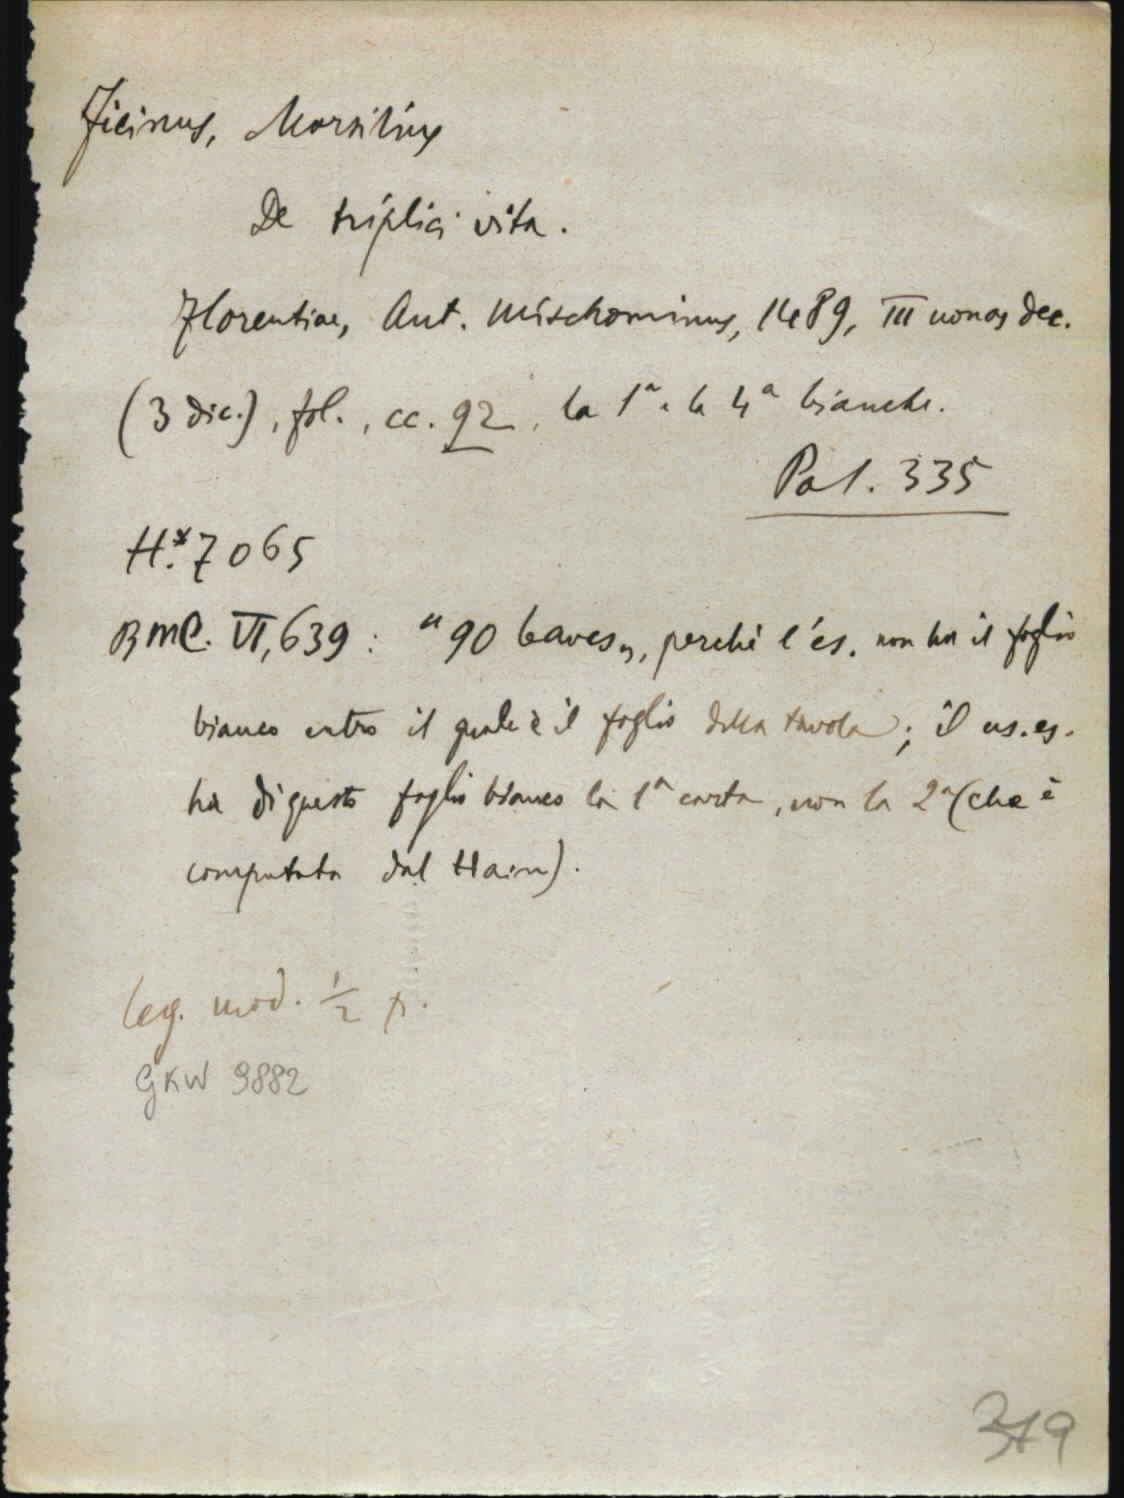 Ficinus, Marsilius
De triplici vita.
Florentiae, Ant. Mischominus, 1489, III nonas dec.
(3 dic.), fol., cc. 92, la 1ª e la 4ª bianche.
Pal. 335
H.* 7065
BMC. VI, 639: "90 leaves", perché l'es. non ha il foglio
bianco entro il quale è il foglio della tavola; il ns. es.
ha di questo foglio bianco la 1ª carta, non la 2ª (che è
computata dal Hain).
Leg. mod. ½ p.
GKW 9882
379